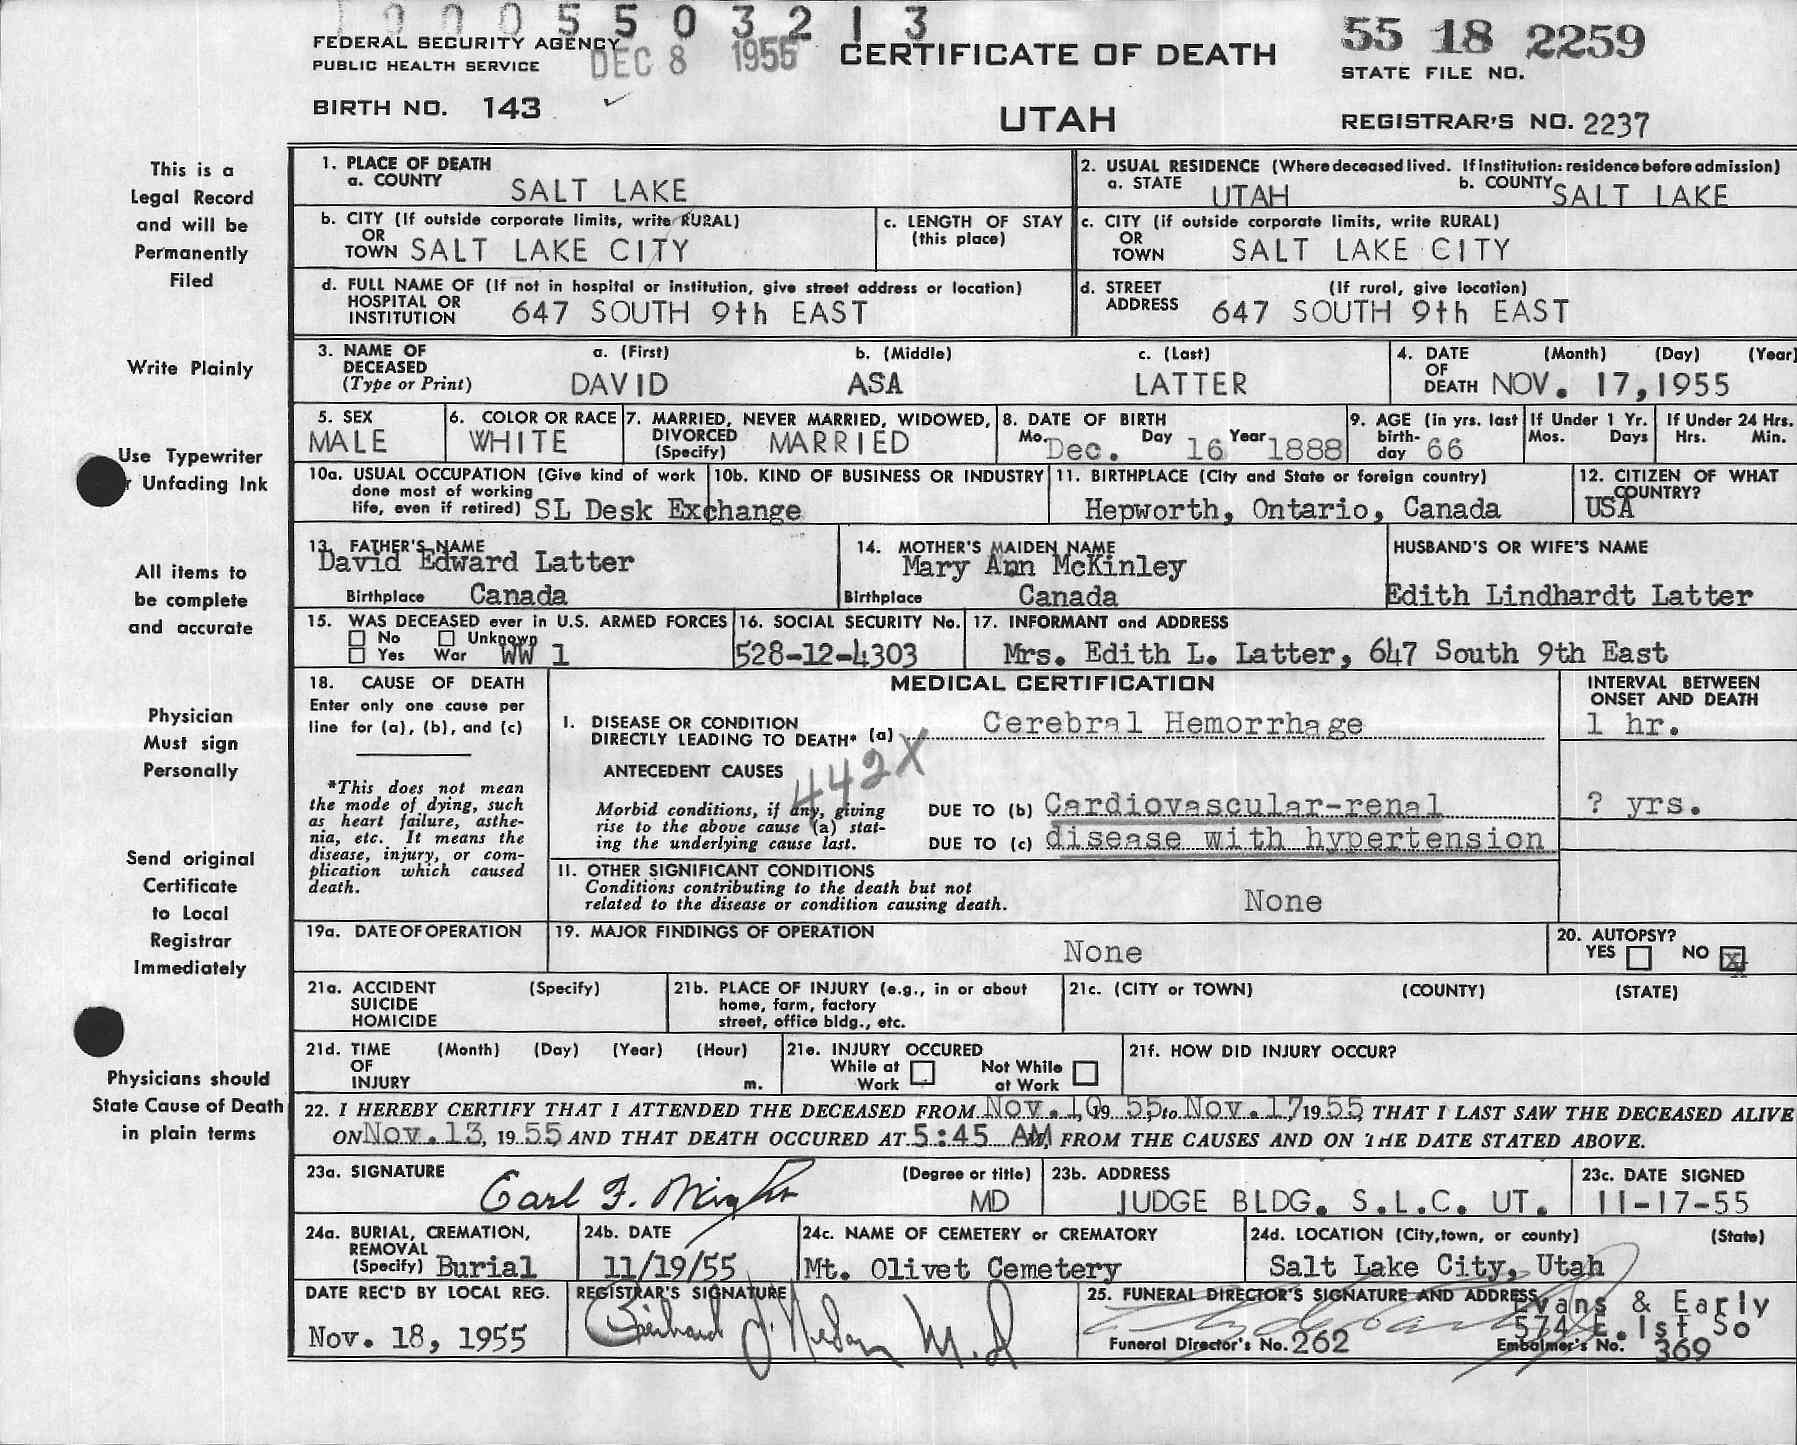 1000550321 3
FEDERAL SECURITY AGENCY
PUBLIC HEALTH SERVICE
DEC 8 1955
CERTIFICATE OF DEATH
55 18 2259
STATE FILE NO.
BIRTH NO. 143
UTAH
REGISTRAR'S NO. 2237
This is a
Legal Record
and will be
Permanently
Filed
Write Plainly
Use Typewriter
r Unfading Ink
All items to
be complete
and accurate
Physician
Must sign
Personally
Send original
Certificate
to Local
Registrar
Immediately
Physicians should
State Cause of Death
in plain terms
1. PLACE OF DEATH
a. COUNTY SALT LAKE
2. USUAL RESIDENCE (Where deceased lived. If institution: residence before admission)
a. STATE UTAH b. COUNTY SALT LAKE
b. CITY (If outside corporate limits, write RURAL)
OR
TOWN SALT LAKE CITY
c. LENGTH OF STAY
(this place)
c. CITY (if outside corporate limits, write RURAL)
OR
TOWN SALT LAKE CITY
d. FULL NAME OF (If not in hospital or institution, give street address or location)
HOSPITAL OR
INSTITUTION 647 SOUTH 9th EAST
d. STREET (If rural, give location)
ADDRESS 647 SOUTH 9th EAST
3. NAME OF a. (First) b. (Middle) c. (Last)
DECEASED
(Type or Print) DAVID ASA LATTER
4. DATE (Month) (Day) (Year)
OF
DEATH NOV. 17,1955
5. SEX
MALE
6. COLOR OR RACE
WHITE
7. MARRIED, NEVER MARRIED, WIDOWED,
DIVORCED
(Specify) MARRIED
8. DATE OF BIRTH
Mo. Dec. Day 16 Year 1888
9. AGE (in yrs. last
birth-
day 66
If Under 1 Yr.
Mos. Days
If Under 24 Hrs.
Hrs. Min.
10a. USUAL OCCUPATION (Give kind of work
done most of working
life, even if retired) SL Desk Exchange
10b. KIND OF BUSINESS OR INDUSTRY
11. BIRTHPLACE (City and State or foreign country)
Hepworth, Ontario, Canada
12. CITIZEN OF WHAT
COUNTRY?
USA
13. FATHER'S NAME
David Edward Latter
Birthplace Canada
14. MOTHER'S MAIDEN NAME
Mary Ann McKinley
Birthplace Canada
HUSBAND'S OR WIFE'S NAME
Edith Lindhardt Latter
15. WAS DECEASED ever in U.S. ARMED FORCES
No Unknown
Yes War WW 1
16. SOCIAL SECURITY No.
528-12-4303
17. INFORMANT and ADDRESS
Mrs. Edith L. Latter, 647 South 9th East
18. CAUSE OF DEATH
Enter only one cause per
line for (a), (b), and (c)
*This does not mean
the mode of dying, such
as heart failure, asthe-
nia, etc. It means the
disease, injury, or com-
plication which caused
death.
MEDICAL CERTIFICATION
INTERVAL BETWEEN
ONSET AND DEATH
I. DISEASE OR CONDITION
DIRECTLY LEADING TO DEATH* (a) Cerebral Hemorrhage
1 hr.
ANTECEDENT CAUSES
442X
Morbid conditions, if any, giving
rise to the above cause (a) stat-
ing the underlying cause last.
DUE TO (b) Cardiovascular-renal
? yrs.
DUE TO (c) disease with hypertension
II. OTHER SIGNIFICANT CONDITIONS
Conditions contributing to the death but not
related to the disease or condition causing death.
None
19a. DATE OF OPERATION
19. MAJOR FINDINGS OF OPERATION
None
20. AUTOPSY?
YES NO X
21a. ACCIDENT (Specify)
SUICIDE
HOMICIDE
21b. PLACE OF INJURY (e.g., in or about
home, farm, factory
street, office bldg., etc.
21c. (CITY or TOWN) (COUNTY) (STATE)
21d. TIME (Month) (Day) (Year) (Hour)
OF
INJURY m.
21e. INJURY OCCURED
While at Not While
Work at Work
21f. HOW DID INJURY OCCUR?
22. I HEREBY CERTIFY THAT I ATTENDED THE DECEASED FROM Nov. 10 19 55, to Nov. 17 19 55, THAT I LAST SAW THE DECEASED ALIVE
ON Nov. 13, 19 55 AND THAT DEATH OCCURED AT 5:45 AM, FROM THE CAUSES AND ON THE DATE STATED ABOVE.
23a. SIGNATURE (Degree or title)
Carl F. Wright MD
23b. ADDRESS
JUDGE BLDG. S.L.C. UT.
23c. DATE SIGNED
11-17-55
24a. BURIAL, CREMATION,
REMOVAL
(Specify) Burial
24b. DATE
11/19/55
24c. NAME OF CEMETERY or CREMATORY
Mt. Olivet Cemetery
24d. LOCATION (City,town, or county) (State)
Salt Lake City, Utah
DATE REC'D BY LOCAL REG.
Nov. 18, 1955
REGISTRAR'S SIGNATURE
M.D
25. FUNERAL DIRECTOR'S SIGNATURE AND ADDRESS
Evans & Early
574 E. 1st So
Funeral Director's No. 262
Embalmer's No. 369